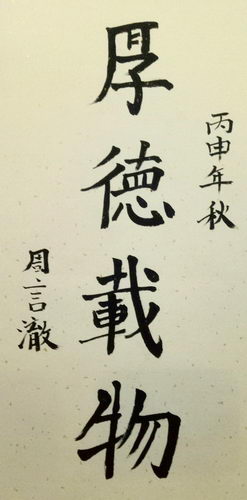 丙申年秋
厚德載物
周言澈